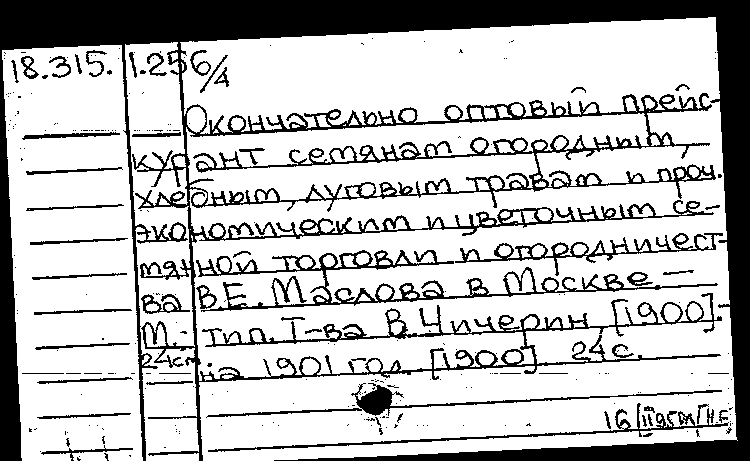 18.315. 1.256/4
Окончательно оптовый прейс-
курант семянам огородным,
хлебным, луговым травам и проч.
экономическим и цветочным се-
мянной торговли и огородничест-
ва В.Е. Маслова в Москве.—
М.: тип. Т-ва В. Чичерин, [1900].-
24см
на 1901 год. [1900]. 24 с.
16/II 95г